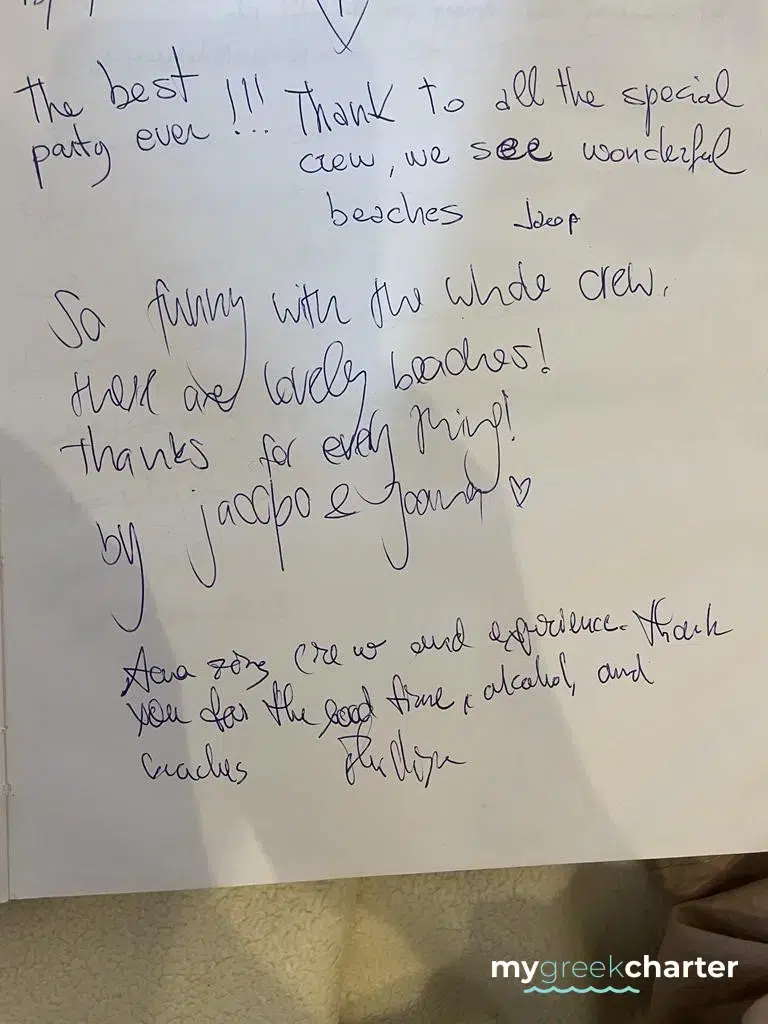 The best
party ever !!!
Thank to all the special
crew, we see wonderful
beaches
So funny with the whole crew,
there are lovely beaches!
thanks for every thing!
by jacopo & Joanna ♡
Amazing crew and experience. Thank
you for the good time, alcohol, and
beaches
mygreekcharter